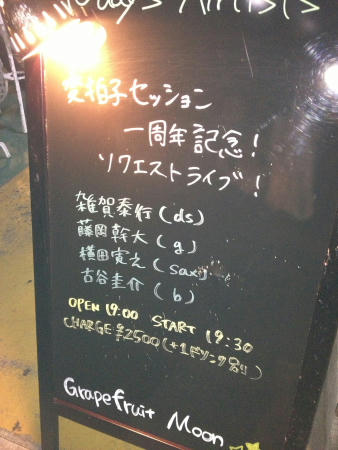 Today's Artists
変拍子セッション
一周年記念!
リクエストライブ!
雑賀泰行(ds)
藤岡幹大(g)
横田寛之(sax)
古谷圭介(b)
OPEN 19:00 START 19:30
CHARGE ¥2500(+1ドリンク別)
Grapefruit Moon